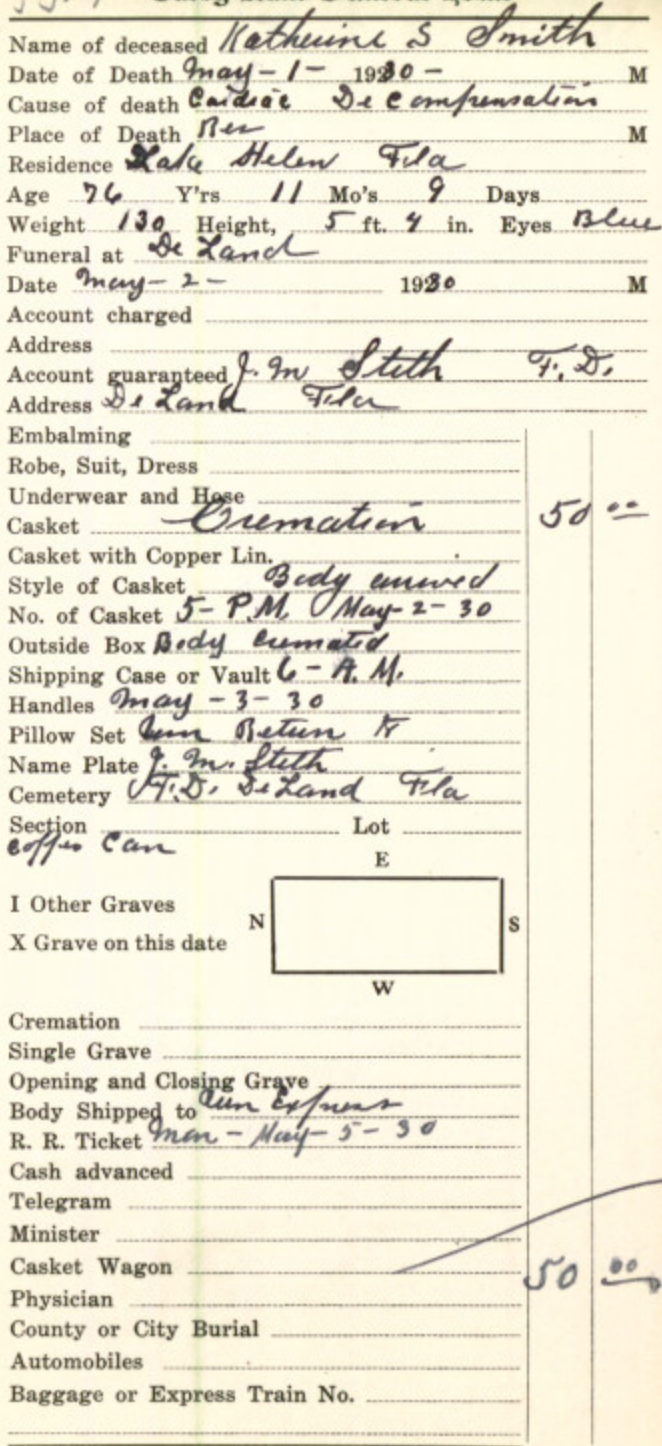 Name of deceased Katherine S Smith
Date of Death May - 1 - 1930 - M
Cause of death Cardiac De Compensation
Place of Death Res M
Residence Lake Helen Fla
Age 76 Y'rs 11 Mo's 9 Days
Weight 130 Height, 5 ft. 4 in. Eyes Blue
Funeral at De Land
Date May - 2 - 1930 M
Account charged
Address
Account guaranteed J. M Steth F. D.
Address De Land Fla
Embalming
Robe, Suit, Dress
Underwear and Hose
Casket Cremation 50 00
Casket with Copper Lin.
Style of Casket Body arrived
No. of Casket 5 - P.M. May - 2 - 30
Outside Box Body Cremated
Shipping Case or Vault 6 - A. M.
Handles May - 3 - 30
Pillow Set Return
Name Plate J. M. Steth
Cemetery F.D. De Land Fla
Section Lot
Can
E
I Other Graves
N S
X Grave on this date
W
Cremation
Single Grave
Opening and Closing Grave
Body Shipped to Express
R. R. Ticket Mon - May - 5 - 30
Cash advanced
Telegram
Minister
Casket Wagon 50 00
Physician
County or City Burial
Automobiles
Baggage or Express Train No.